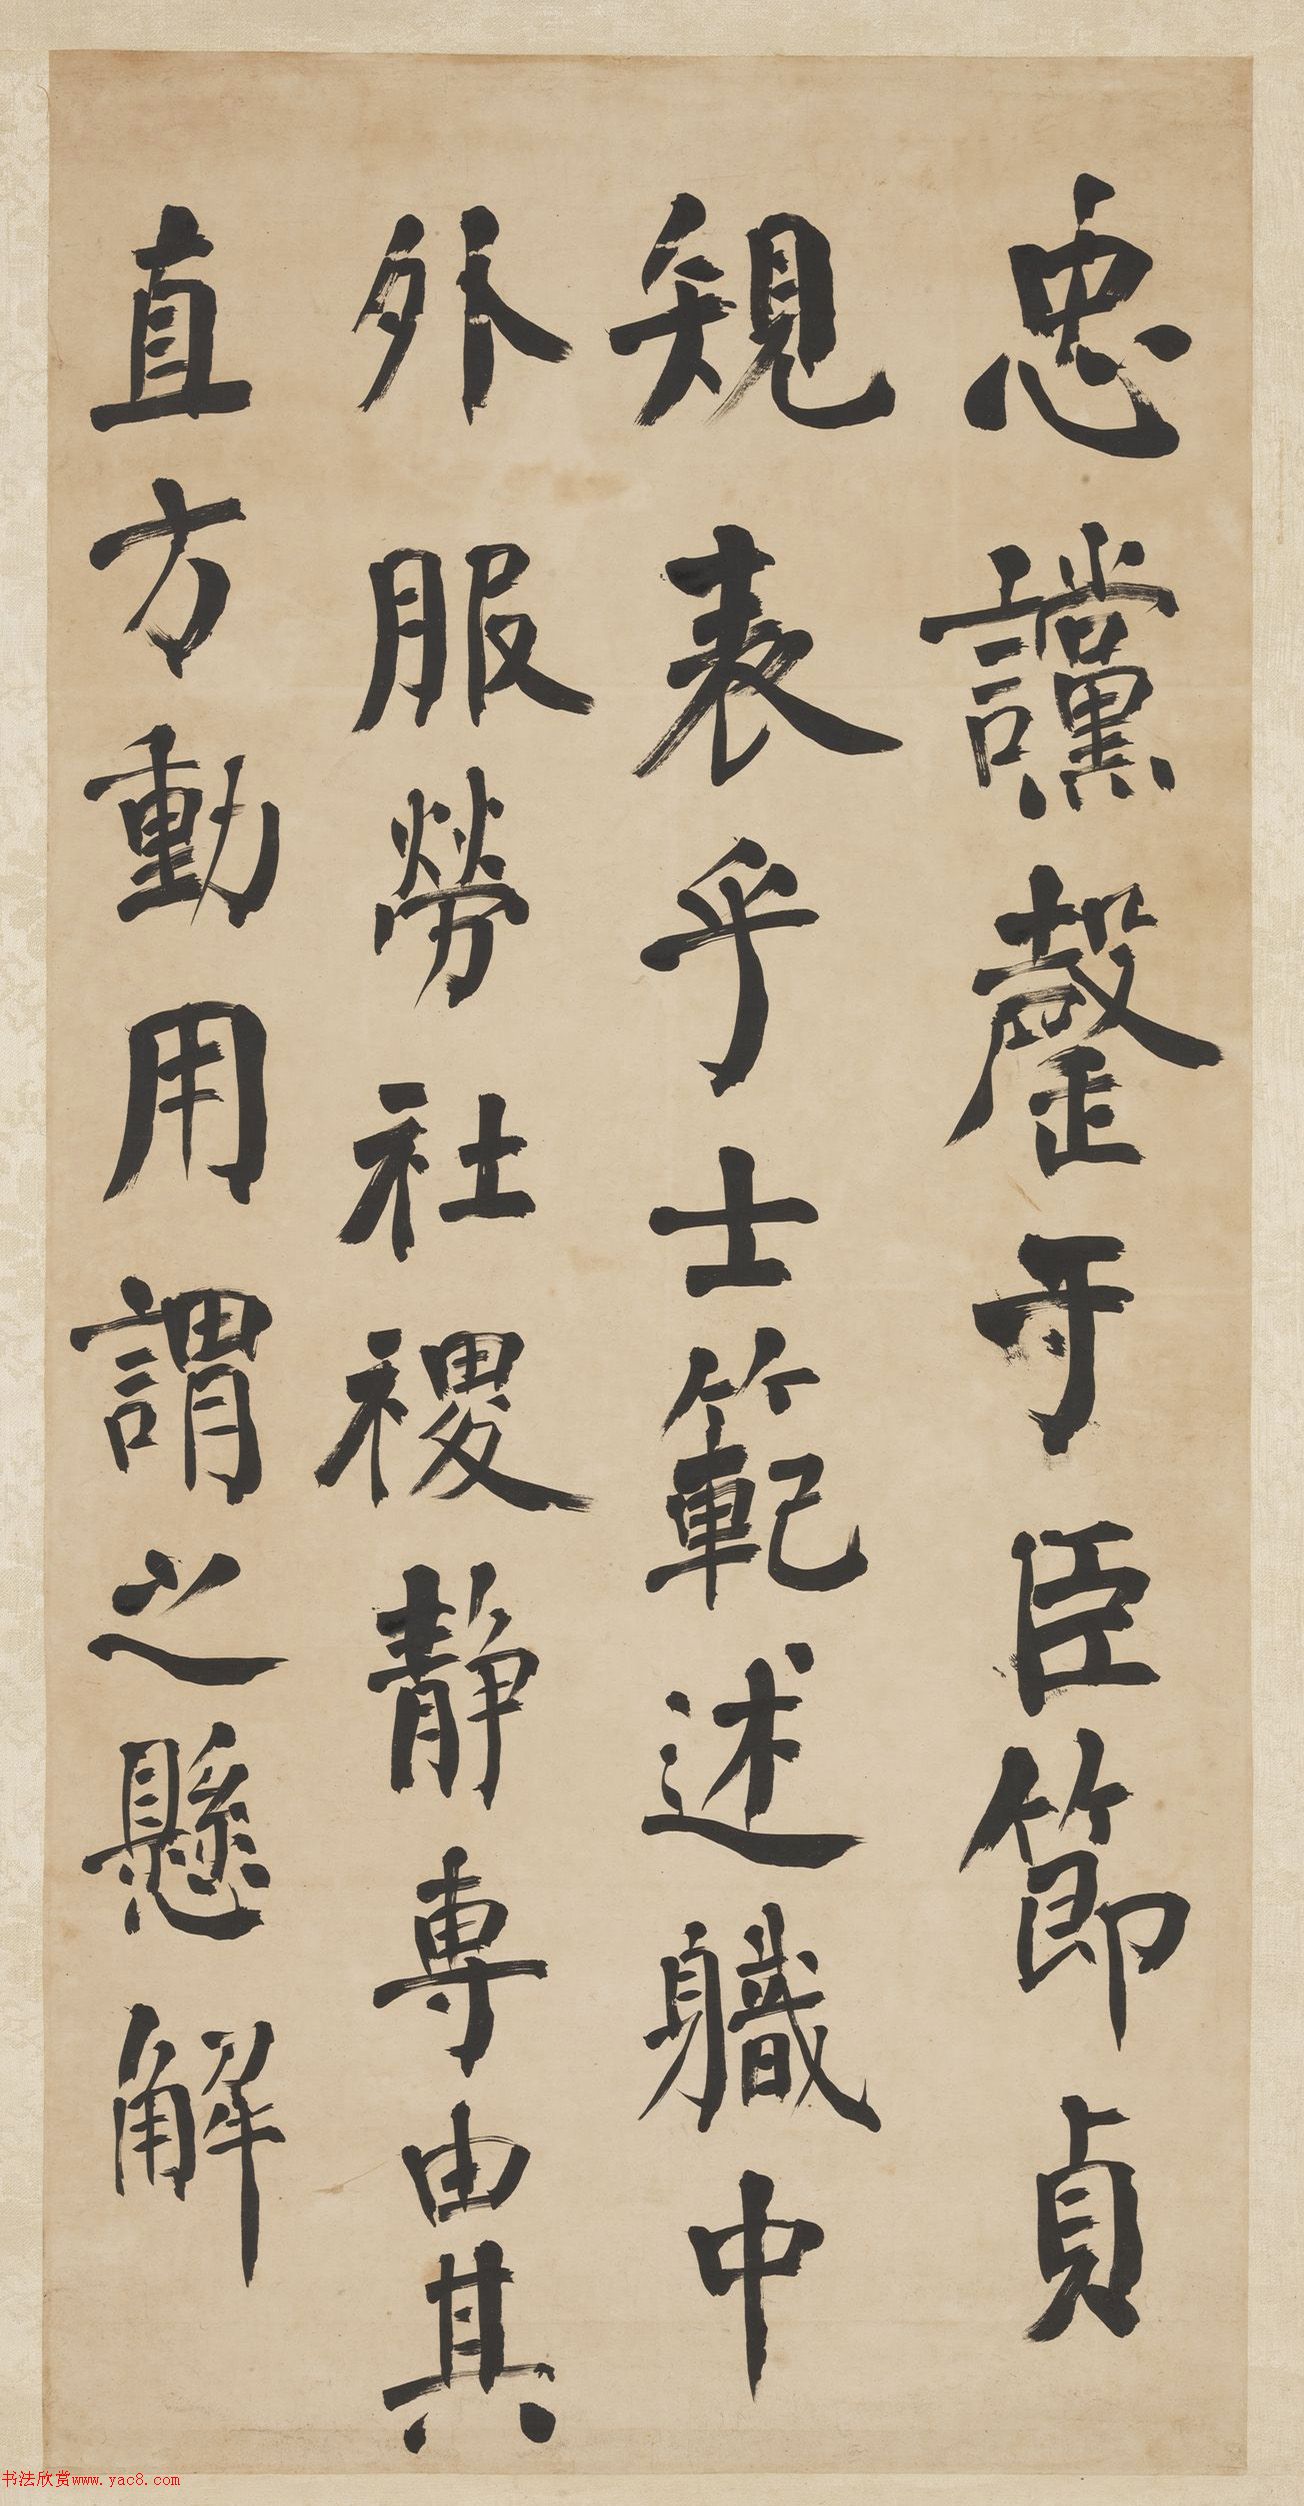 忠讜罄于臣節貞
規表乎士範述職中
外服勞社稷静專由其
直方動用謂之懸解
书法欣赏www.yac8.com